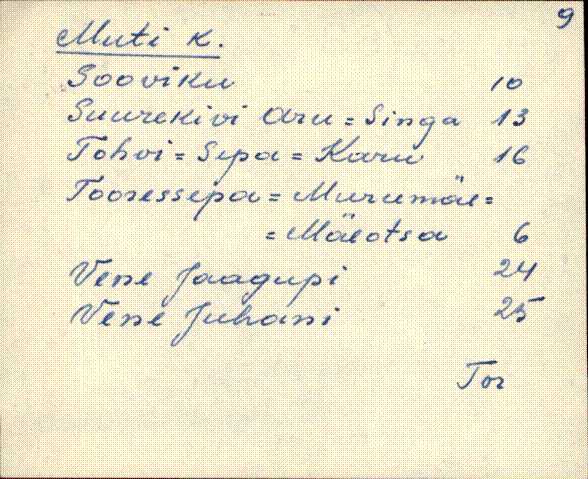 9
Muti k.
Sooviku 10
Suurekivi Aru = Singa 13
Tohvi = Sepa = Karu 16
Tooressepa = Murumäe =
= Mäeotsa 6
Vene Jaagupi 24
Vene Juhani 25
Tor